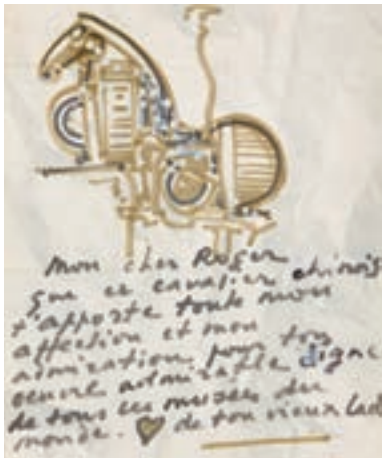 Mon cher Roger
que ce cavalier chinois
t'apporte toute mon
affection et mon
admiration pour ton
oeuvre admirable digne
de tous les musées du
monde. de ton vieux